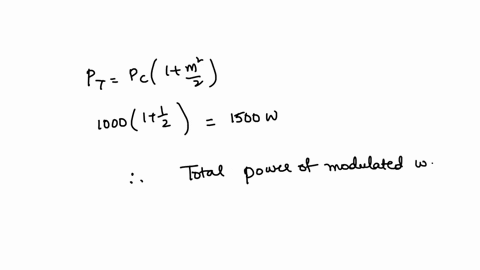 P_T = P_C (1 + m²/2)
1000 (1 + 1/2) = 1500 W
∴ Total power of modulated w.